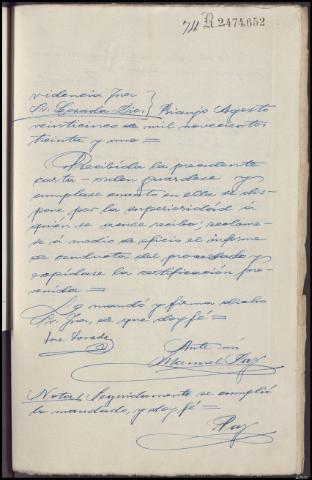 711 R 2474,652
videncia Juez
Sr. Losada Dios } Rianjo Agosto
veinticinco de mil novecientos
treinta y uno =
Recibida la precedente
carta-orden guardese y
cumplase cuanto en ella se dis-
pone por la superioridad á
quién se acuse recibo; reclame-
se á medio de oficio el informe
de conducta del procesado y
expidase la certificación pre-
venida =
Lo mandó y firma dicho
Sr. Juez, de que doy fé =
José Losada
Ante mi
Manuel Paz
Nota } Seguidamente se cumplió
lo mandado, y doy fé =
Paz